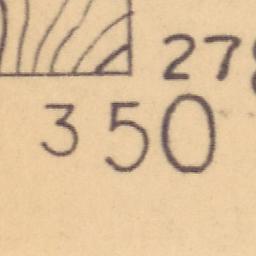 27
350